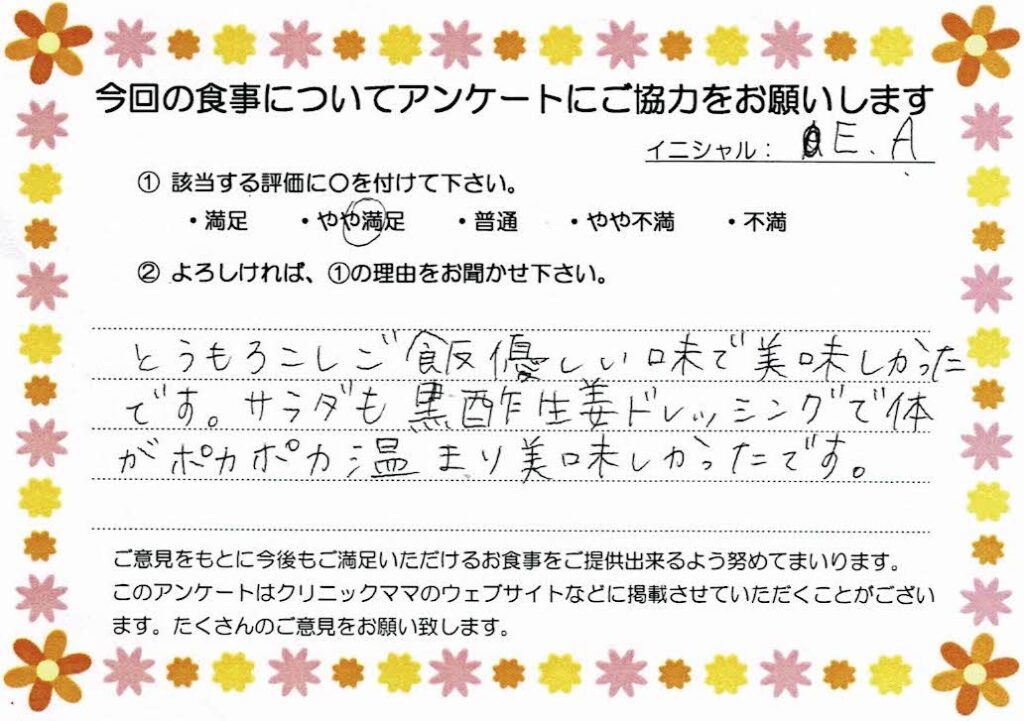 今回の食事についてアンケートにご協力をお願いします
イニシャル： E.A
① 該当する評価に〇を付けて下さい。
・満足 ・やや満足 ・普通 ・やや不満 ・不満
② よろしければ、①の理由をお聞かせ下さい。
とうもろこしご飯優しい味で美味しかった
です。サラダも黒酢生姜ドレッシングで体
がポカポカ温まり美味しかったです。
ご意見をもとに今後もご満足いただけるお食事をご提供出来るよう努めてまいります。
このアンケートはクリニックママのウェブサイトなどに掲載させていただくことがござい
ます。たくさんのご意見をお願い致します。